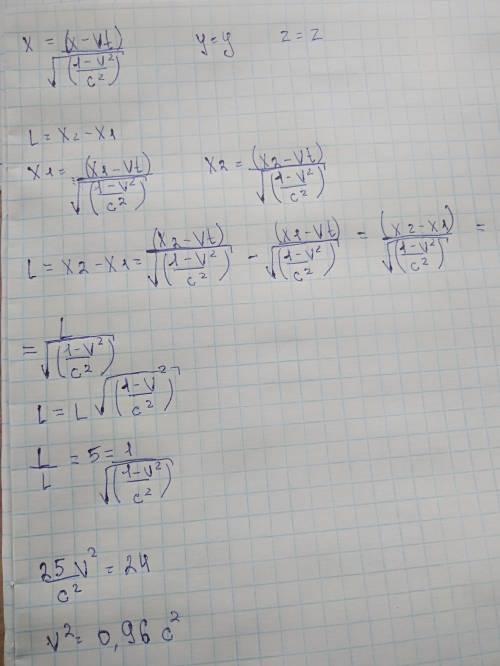 x = (x-Vt)/√((1-V²)/c²) y=y z=z
L = x2-x1
x1 = (x1-Vt)/√((1-V²)/c²) x2 = (x2-Vt)/√((1-V²)/c²)
L = x2-x1 = (x2-Vt)/√((1-V²)/c²) - (x1-Vt)/√((1-V²)/c²) = (x2-x1)/√((1-V²)/c²) =
= L/√((1-V²)/c²)
L = L√((1-V²)/c²)
L/L = 5 = 1/√((1-V²)/c²)
25V²/c² = 24
V² = 0,96 c²